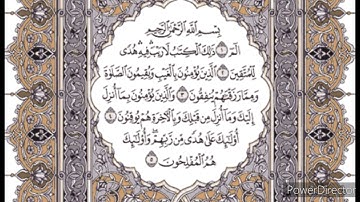 بِسْمِ اللَّهِ الرَّحْمَٰنِ الرَّحِيمِ
الٓمٓ ١ ذَٰلِكَ الْكِتَٰبُ لَا رَيْبَ فِيهِ هُدًى
لِّلْمُتَّقِينَ ٢ الَّذِينَ يُؤْمِنُونَ بِالْغَيْبِ وَيُقِيمُونَ الصَّلَوٰةَ
وَمِمَّا رَزَقْنَٰهُمْ يُنفِقُونَ ٣ وَالَّذِينَ يُؤْمِنُونَ بِمَا أُنزِلَ
إِلَيْكَ وَمَا أُنزِلَ مِن قَبْلِكَ وَبِالْآخِرَةِ هُمْ يُوقِنُونَ ٤
أُولَٰئِكَ عَلَىٰ هُدًى مِّن رَّبِّهِمْ وَأُولَٰئِكَ
هُمُ الْمُفْلِحُونَ ٥
PowerDirector